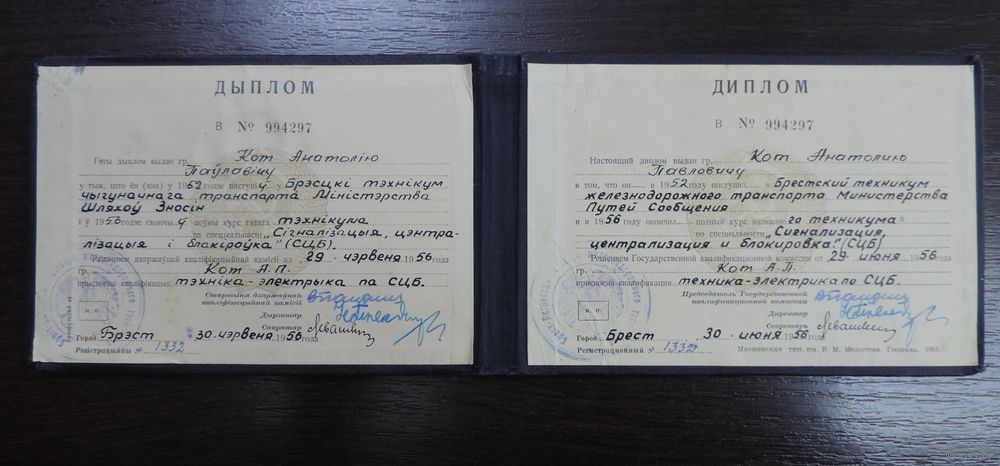 ДЫПЛОМ
В № 994297
Гэты дыплом выдан гр. Кот Анатолію
Паўлавічу
у тым, што ён (яна) у 1952 годзе паступіў у Брэсцкі тэхнікум
чыгуначнага транспарта Міністэрства
Шляхоў Зносін
і ў 1956 годзе скончыў поўны курс гэтага тэхнікума
па спецыяльнасці „Сігналізацыя, цэнтра-
лізацыя і блакіроўка" (СЦБ).
Рашэннем дзяржаўнай кваліфікацыйнай камісіі ад 29 чэрвеня 1956 г.
гр. Кот А.П.
прысвоена кваліфікацыя тэхніка-электрыка па СЦБ.
Старшыня дзяржаўнай
кваліфікацыйнай камісіі
Дырэктар
М. П.
Сакратар
Горад Брэст 30 чэрвеня 1956 года
Рэгістрацыйны № 1332
ДИПЛОМ
В № 994297
Настоящий диплом выдан гр. Кот Анатолию
Павловичу
в том, что он в 1952 году поступил в Брестский техникум
железнодорожного транспорта Министерства
Путей Сообщения
и в 1956 году окончил полный курс названного техникума
по специальности „Сигнализация,
централизация и блокировка" (СЦБ)
Решением Государственной квалификационной комиссии от 29 июня 1956 г.
гр. Кот А.П.
присвоена квалификация техника-электрика по СЦБ.
Председатель Государственной
квалификационной комиссии
Директор
М. П.
Секретарь
Город Брест 30 июня 1956 года
Регистрационный № 1332
Московская тип. им. В. М. Молотова Гознака. 1954.